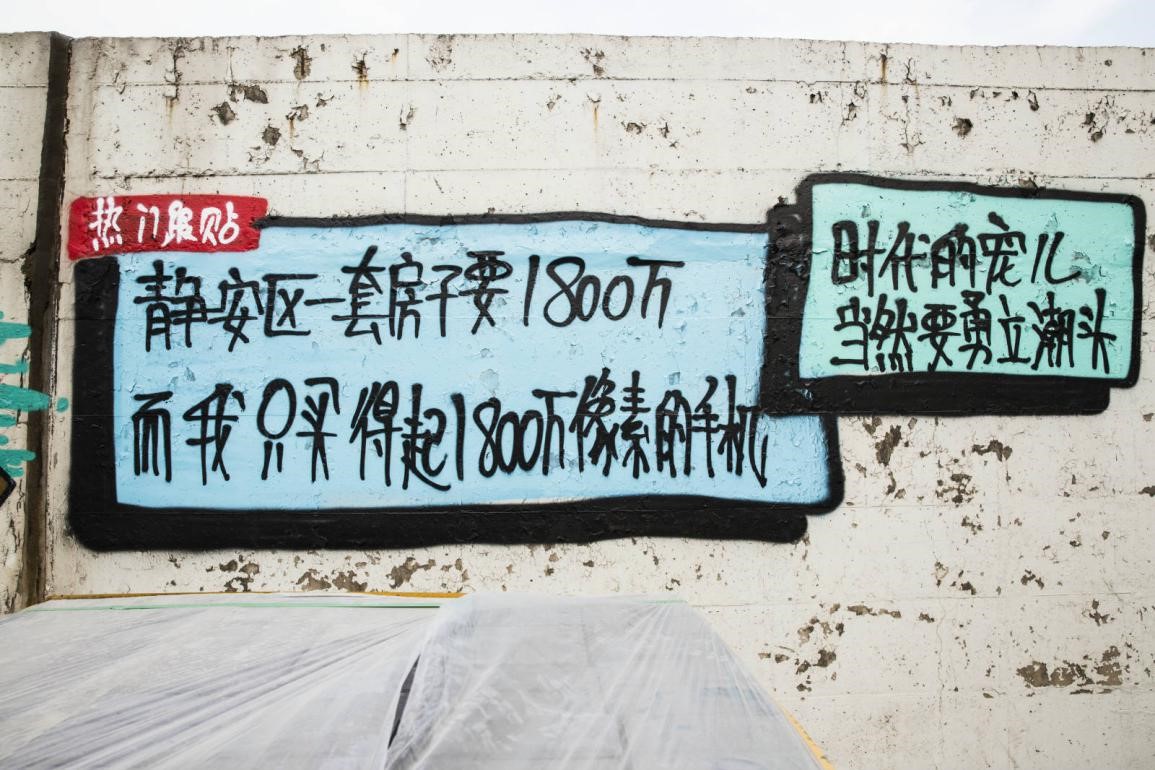 热门跟贴
静安区一套房子要1800万
而我只买得起1800万像素的手机
时代的宠儿
当然要勇立潮头